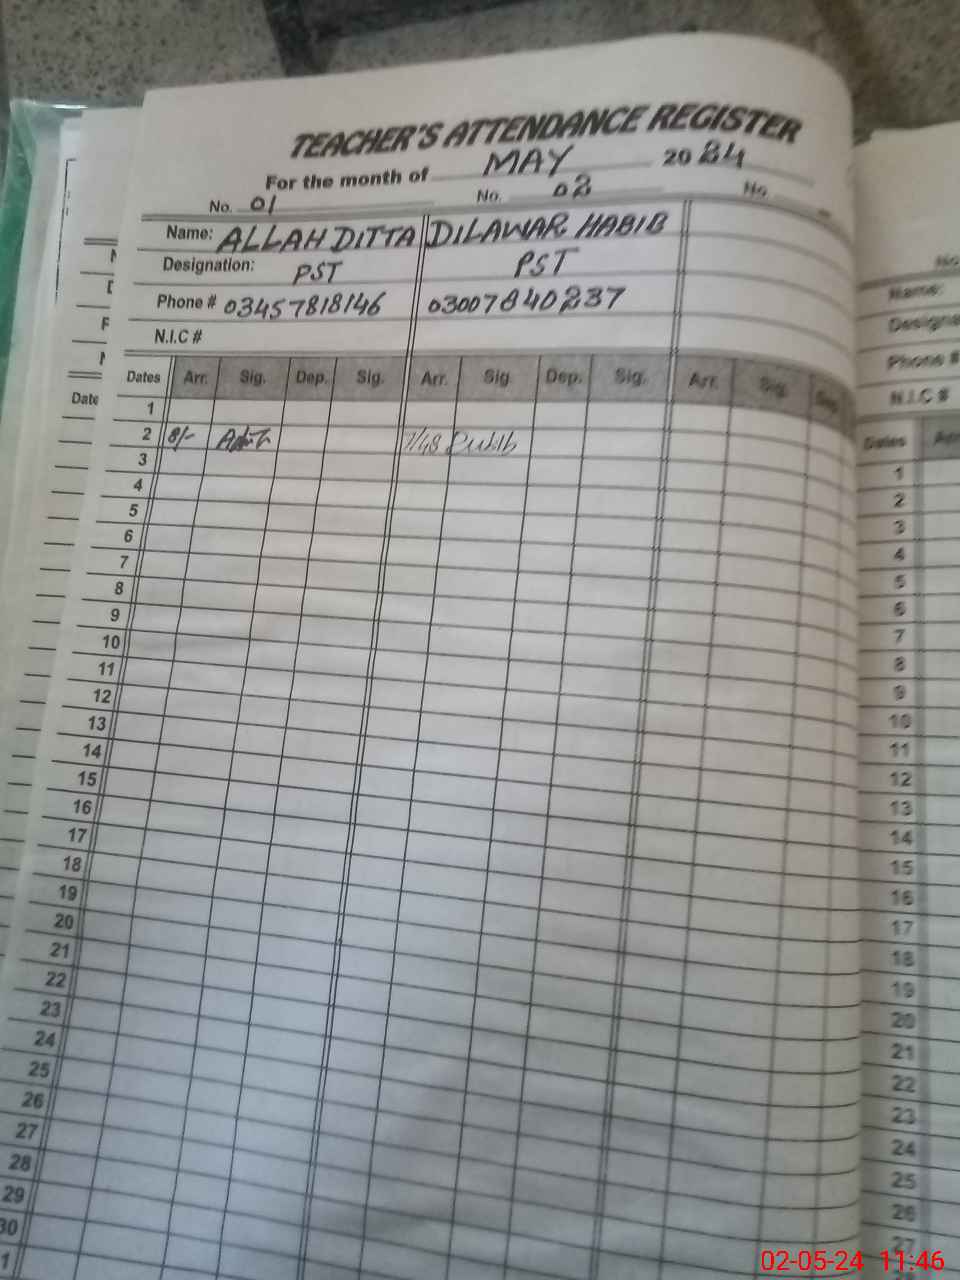 TEACHER'S ATTENDANCE REGISTER
For the month of MAY 2024
No. 01 No. 02 No.
Name: ALLAH DITTA DILAWAR HABIB
Designation: PST PST
Phone # 03457818146 03007840237
N.I.C #
Dates Arr. Sig. Dep. Sig. Arr. Sig Dep. Sig. Arr. Sig. Dep.
1
2 8/- 7/48
3
4
5
6
7
8
9
10
11
12
13
14
15
16
17
18
19
20
21
22
23
24
25
26
27
28
29
30
1
Date
No.
Name:
Designa
Phone #
N.I.C #
Dates Arr
1
2
3
4
5
6
7
8
9
10
11
12
13
14
15
16
17
18
19
20
21
22
23
24
25
26
27
02-05-24 11:46